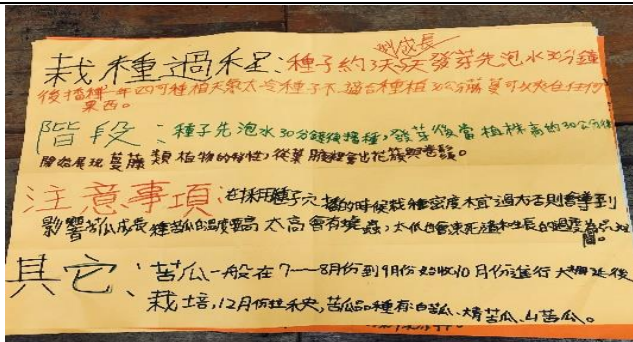 到成長
栽種過程:種子約3天~5天發芽先泡水30分鐘
後播種一年四季可種植天氣太冷種子不適合種植30公分藤蔓可以夾在任何
東西。
階段:種子先泡水30分鐘後播種,發芽後當植株高約30公分後
開始展現蔓藤類植物的特性,從葉腋裡會出花簇與卷鬚。
注意事項:在採用種子穴播的時候栽種密度不宜過大否則會導到
影響苦瓜成長種苦瓜的溫度要高太高會有燒蟲,太低也會凍死適和生長的溫度為
間。
其它:苦瓜一般在7——8月份到9月份始收10月份進行大棚延後
栽培,12月份拉秧,苦瓜品種有白苦瓜、大青苦瓜、山苦瓜。